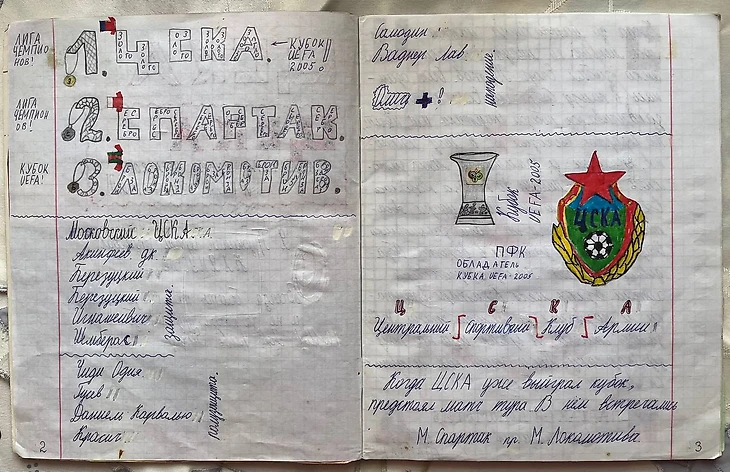 ЛИГА
ЧЕМПИО
НОВ!
1. ЦСКА.
КУБОК
UEFA
2005.
ЛИГА
ЧЕМПИОН
ОВ!
2. СПАРТАК.
КУБОК
UEFA!
3. ЛОКОМОТИВ.
Московский ЦСКА
Акинфеев
Березуцкий
Березуцкий
Игнашевич
Шемберас
защита.
Чиди Одиа.
Гусев
Даниель Карвалью
Красич
полузащита.
2
Самодин
Вагнер Лав.
нападение.
Олич + !
Кубок
UEFA-2005
ЦСКА
ПФК
ОБЛАДАТЕЛЬ
КУБКА UEFA-2005
Ц С К А
Центральний Спортивний Клуб Армии
Когда ЦСКА уже выйграл кубок,
предстоял матч тура В нём встречались
М. Спартак пр. М. Локомотива
3